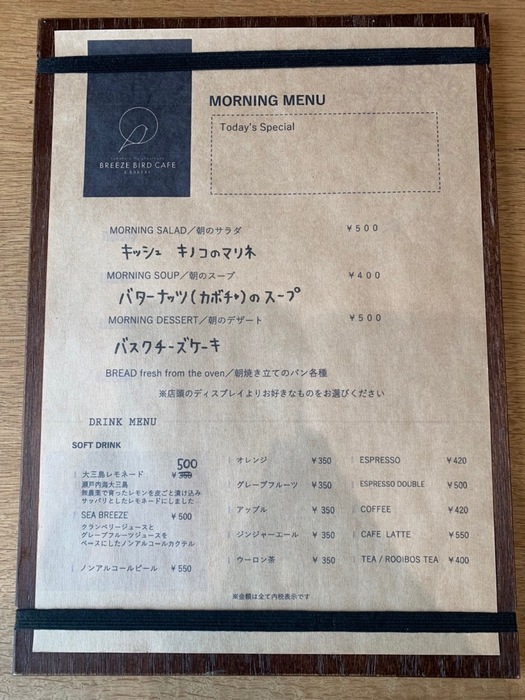 BREEZE BIRD CAFE
& BAKERY
MORNING MENU
Today's Special
MORNING SALAD／朝のサラダ ￥500
キッシュ キノコのマリネ
MORNING SOUP／朝のスープ ￥400
バターナッツ(カボチャ)のスープ
MORNING DESSERT／朝のデザート ￥500
バスクチーズケーキ
BREAD fresh from the oven／朝焼き立てのパン各種
※店頭のディスプレイよりお好きなものをお選びください
DRINK MENU
SOFT DRINK
500
大三島レモネード ￥350
瀬戸内海大三島
無農薬で育ったレモンを皮ごと漬け込み
サッパリとしたレモネードにしました
SEA BREEZE ￥500
クランベリージュースと
グレープフルーツジュースを
ベースにしたノンアルコールカクテル
ノンアルコールビール ￥550
オレンジ ￥350
グレープフルーツ ￥350
アップル ￥350
ジンジャーエール ￥350
ウーロン茶 ￥350
ESPRESSO ￥420
ESPRESSO DOUBLE ￥500
COFFEE ￥420
CAFE LATTE ￥550
TEA / ROOIBOS TEA ￥400
※金額は全て内税表示です